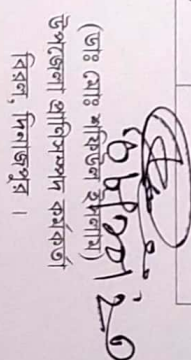 (ডাঃ মোঃ শফিকুল ইসলাম)
উপজেলা প্রাণিসম্পদ কর্মকর্তা
বিরল, দিনাজপুর ।